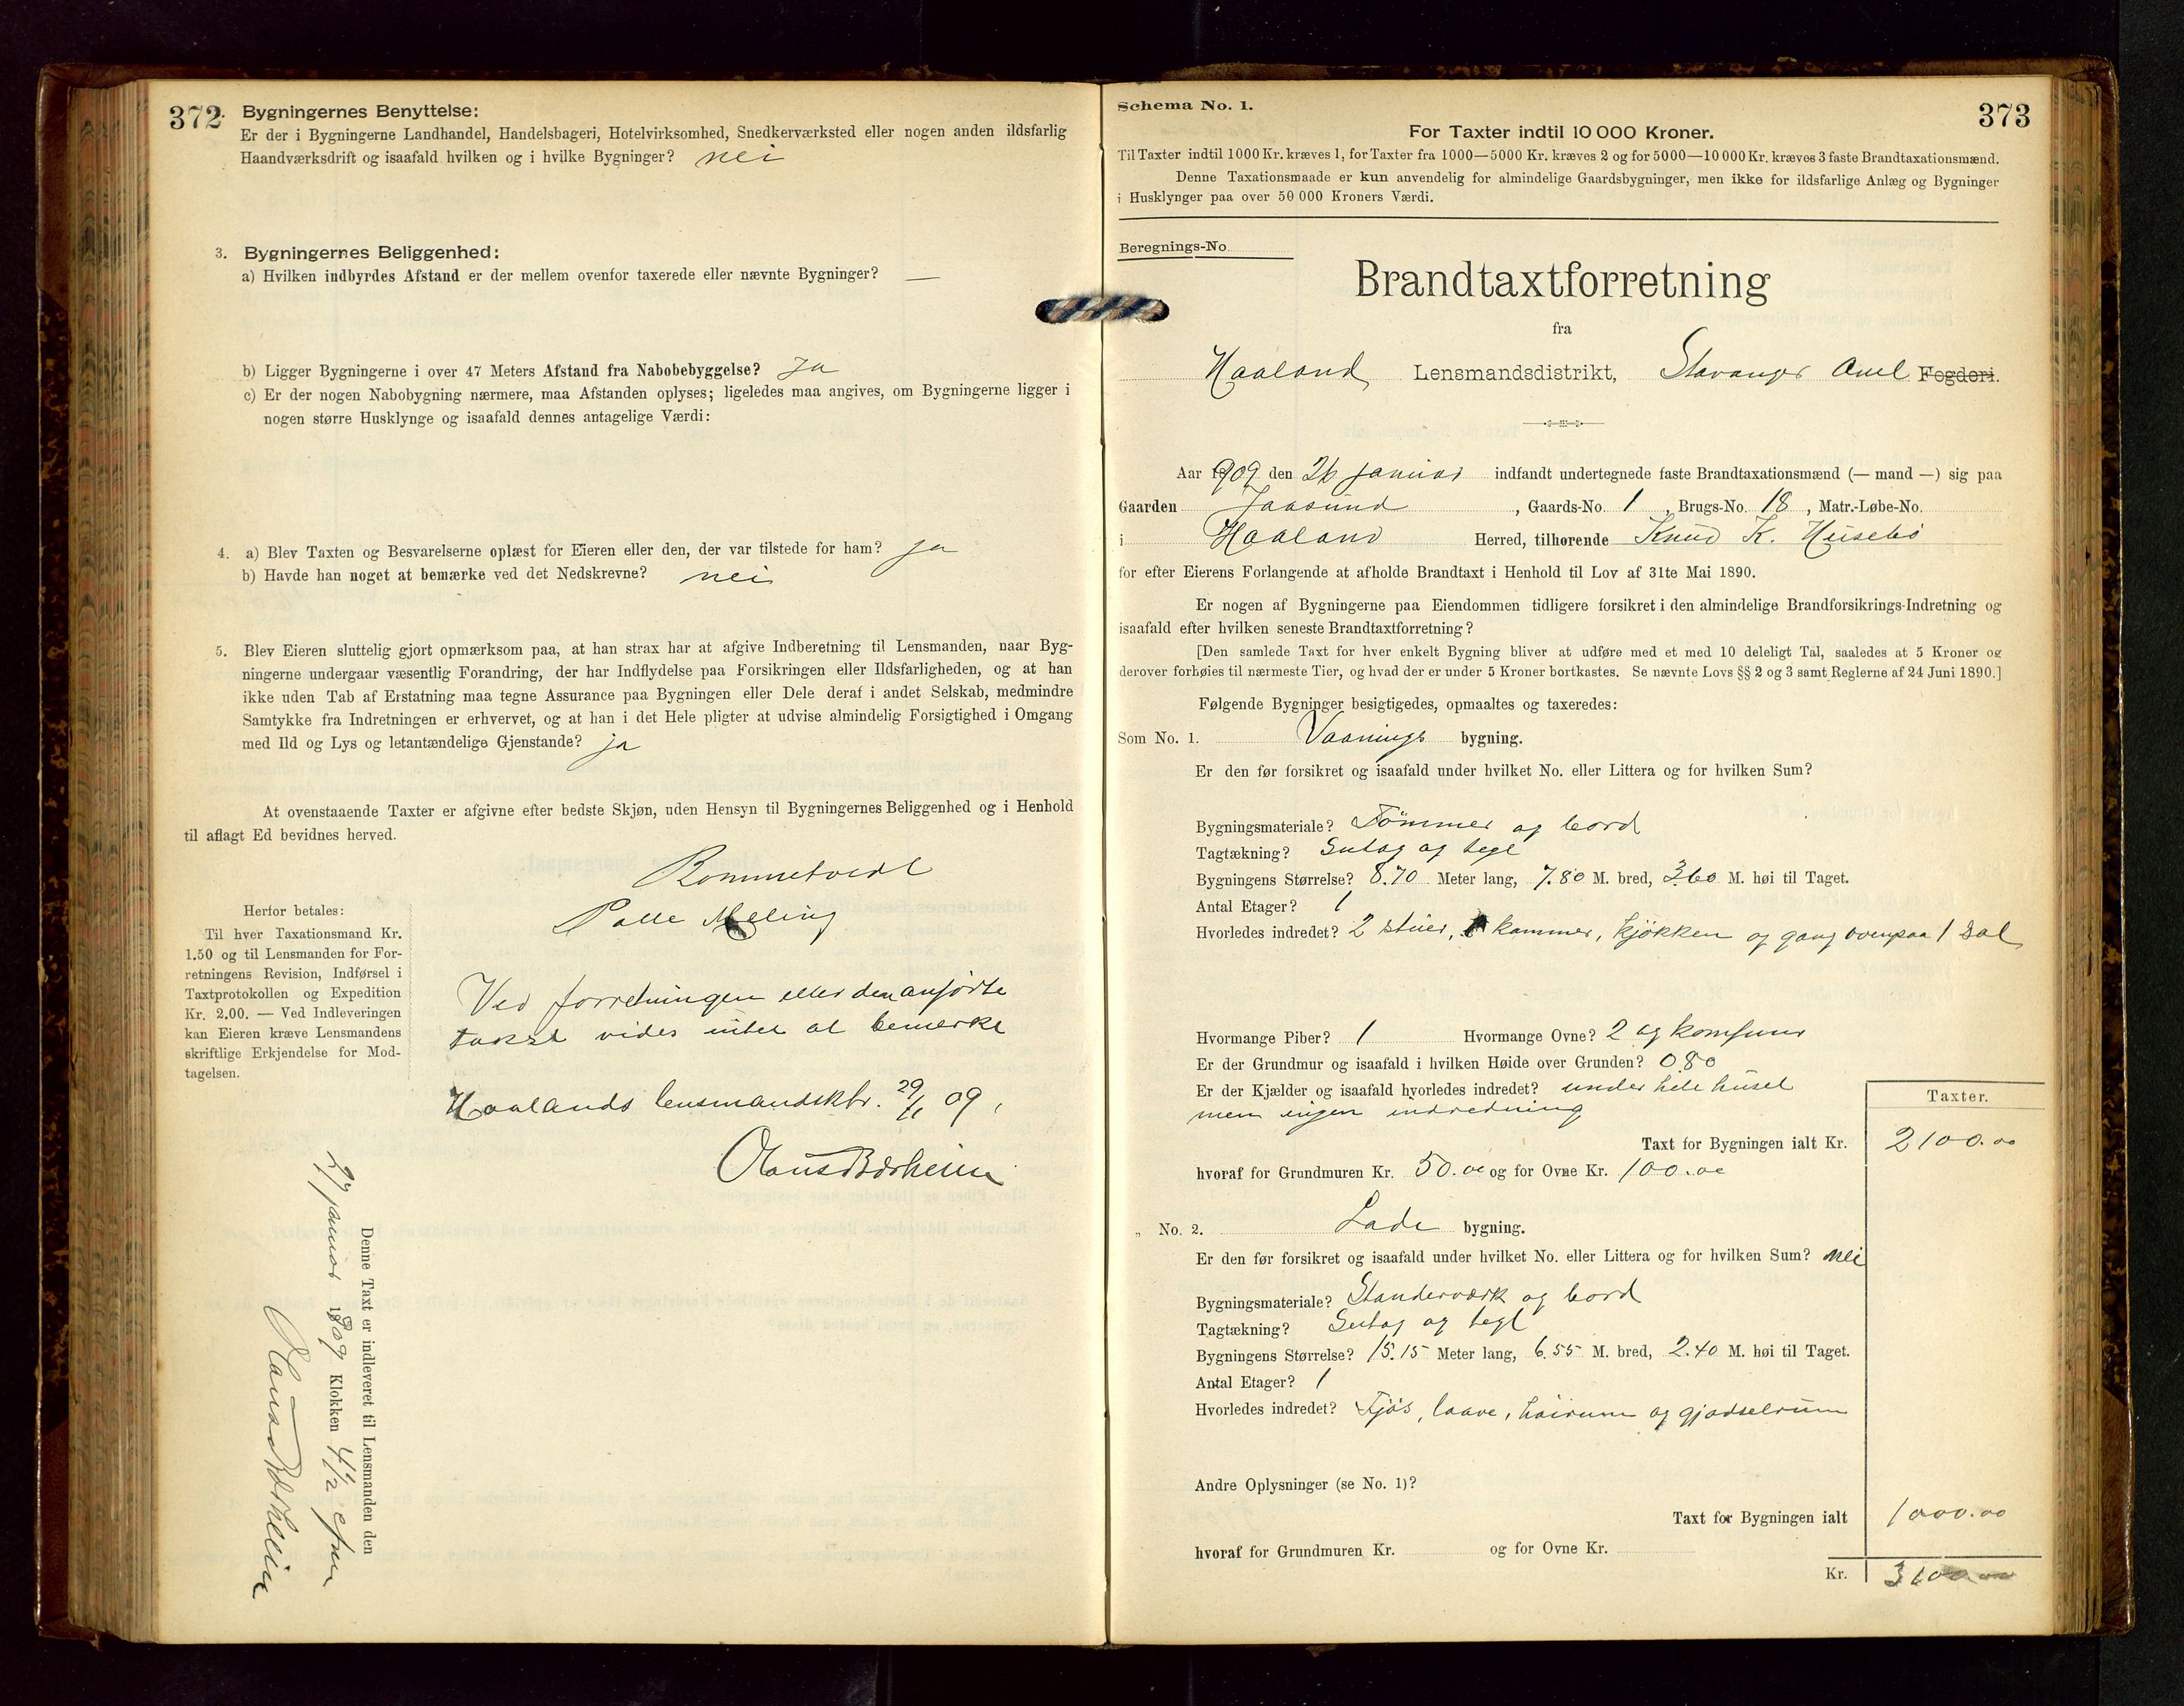 372.
Bygningernes Benyttelse:
Er der i Bygningerne Landhandel, Handelsbageri, Hotelvirksomhed, Snedkerværksted eller nogen anden ildsfarlig
Haandværksdrift og isaafald hvilken og i hvilke Bygninger? nei
3. Bygningernes Beliggenhed:
a) Hvilken indbyrdes Afstand er der mellem ovenfor taxerede eller nævnte Bygninger? —
b) Ligger Bygningerne i over 47 Meters Afstand fra Nabobebyggelse? Ja
c) Er der nogen Nabobygning nærmere, maa Afstanden oplyses; ligeledes maa angives, om Bygningerne ligger i
nogen større Husklynge og isaafald dennes antagelige Værdi:
4. a) Blev Taxten og Besvarelserne oplæst for Eieren eller den, der var tilstede for ham? ja
b) Havde han noget at bemærke ved det Nedskrevne? nei
5. Blev Eieren sluttelig gjort opmærksom paa, at han strax har at afgive Indberetning til Lensmanden, naar Byg-
ningerne undergaar væsentlig Forandring, der har Indflydelse paa Forsikringen eller Ildsfarligheden, og at han
ikke uden Tab af Erstatning maa tegne Assurance paa Bygningen eller Dele deraf i andet Selskab, medmindre
Samtykke fra Indretningen er erhvervet, og at han i det Hele pligter at udvise almindelig Forsigtighed i Omgang
med Ild og Lys og letantændelige Gjenstande? ja
At ovenstaaende Taxter er afgivne efter bedste Skjøn, uden Hensyn til Bygningernes Beliggenhed og i Henhold
til aflagt Ed bevidnes herved.
Rommetvedt
Palle Meling
Herfor betales:
Til hver Taxationsmand Kr.
1.50 og til Lensmanden for For-
retningens Revision, Indførsel i
Taxtprotokollen og Expedition
Kr. 2.00. — Ved Indleveringen
kan Eieren kræve Lensmandens
skriftlige Erkjendelse for Mod-
tagelsen.
Ved forretningen eller den anførte
takst vides intet at bemerke
Haalands lensmandsktr. 29/1 09,
Olaus Børheim
Denne Taxt er indleveret til Lensmanden den
27 januar 1909 Klokken 4 1/2 efm
Olaus Børheim
Schema No. 1.
373
For Taxter indtil 10 000 Kroner.
Til Taxter indtil 1000 Kr. kræves 1, for Taxter fra 1000—5000 Kr. kræves 2 og for 5000—10 000 Kr. kræves 3 faste Brandtaxationsmænd.
Denne Taxationsmaade er kun anvendelig for almindelige Gaardsbygninger, men ikke for ildsfarlige Anlæg og Bygninger
i Husklynger paa over 50 000 Kroners Værdi.
Beregnings-No.
Brandtaxtforretning
fra
Haaland Lensmandsdistrikt, Stavanger Amt Fogderi.
Aar 1909 den 26 januar indfandt undertegnede faste Brandtaxationsmænd (— mand —) sig paa
Gaarden Jaasund, Gaards-No. 1, Brugs-No. 18, Matr.-Løbe-No.
i Haaland Herred, tilhørende Knud K. Husebø
for efter Eierens Forlangende at afholde Brandtaxt i Henhold til Lov af 31te Mai 1890.
Er nogen af Bygningerne paa Eiendommen tidligere forsikret i den almindelige Brandforsikrings-Indretning og
isaafald efter hvilken seneste Brandtaxtforretning?
[Den samlede Taxt for hver enkelt Bygning bliver at udføre med et med 10 deleligt Tal, saaledes at 5 Kroner og
derover forhøies til nærmeste Tier, og hvad der er under 5 Kroner bortkastes. Se nævnte Lovs §§ 2 og 3 samt Reglerne af 24 Juni 1890.]
Følgende Bygninger besigtigedes, opmaaltes og taxeredes:
Som No. 1. Vaanings bygning.
Er den før forsikret og isaafald under hvilket No. eller Littera og for hvilken Sum?
Bygningsmateriale? Tømmer og bord
Tagtækning? Sutag og tegl
Bygningens Størrelse? 8.70 Meter lang, 7.80 M. bred, 3.60 M. høi til Taget.
Antal Etager? 1
Hvorledes indredet? 2 stuer, kammer, kjøkken og gang ovenpaa 1 Sal
Hvormange Piber? 1 Hvormange Ovne? 2 og komfuur
Er der Grundmur og isaafald i hvilken Høide over Grunden? 0.80
Er der Kjælder og isaafald hvorledes indredet? under hele huset
men ingen indredning
Taxter.
Taxt for Bygningen ialt Kr. 2100.00
hvoraf for Grundmuren Kr. 50.00 og for Ovne Kr. 100.00
„ No. 2. Lade bygning.
Er den før forsikret og isaafald under hvilket No. eller Littera og for hvilken Sum? nei
Bygningsmateriale? Standerværk og bord
Tagtækning? Sutag og tegl
Bygningens Størrelse? 15.15 Meter lang, 6.55 M. bred, 2.40 M. høi til Taget.
Antal Etager? 1
Hvorledes indredet? Fjøs, laave, høirum og gjødselrum
Andre Oplysninger (se No. 1)?
Taxt for Bygningen ialt 1000.00
hvoraf for Grundmuren Kr. og for Ovne Kr.
Kr. 3100.00